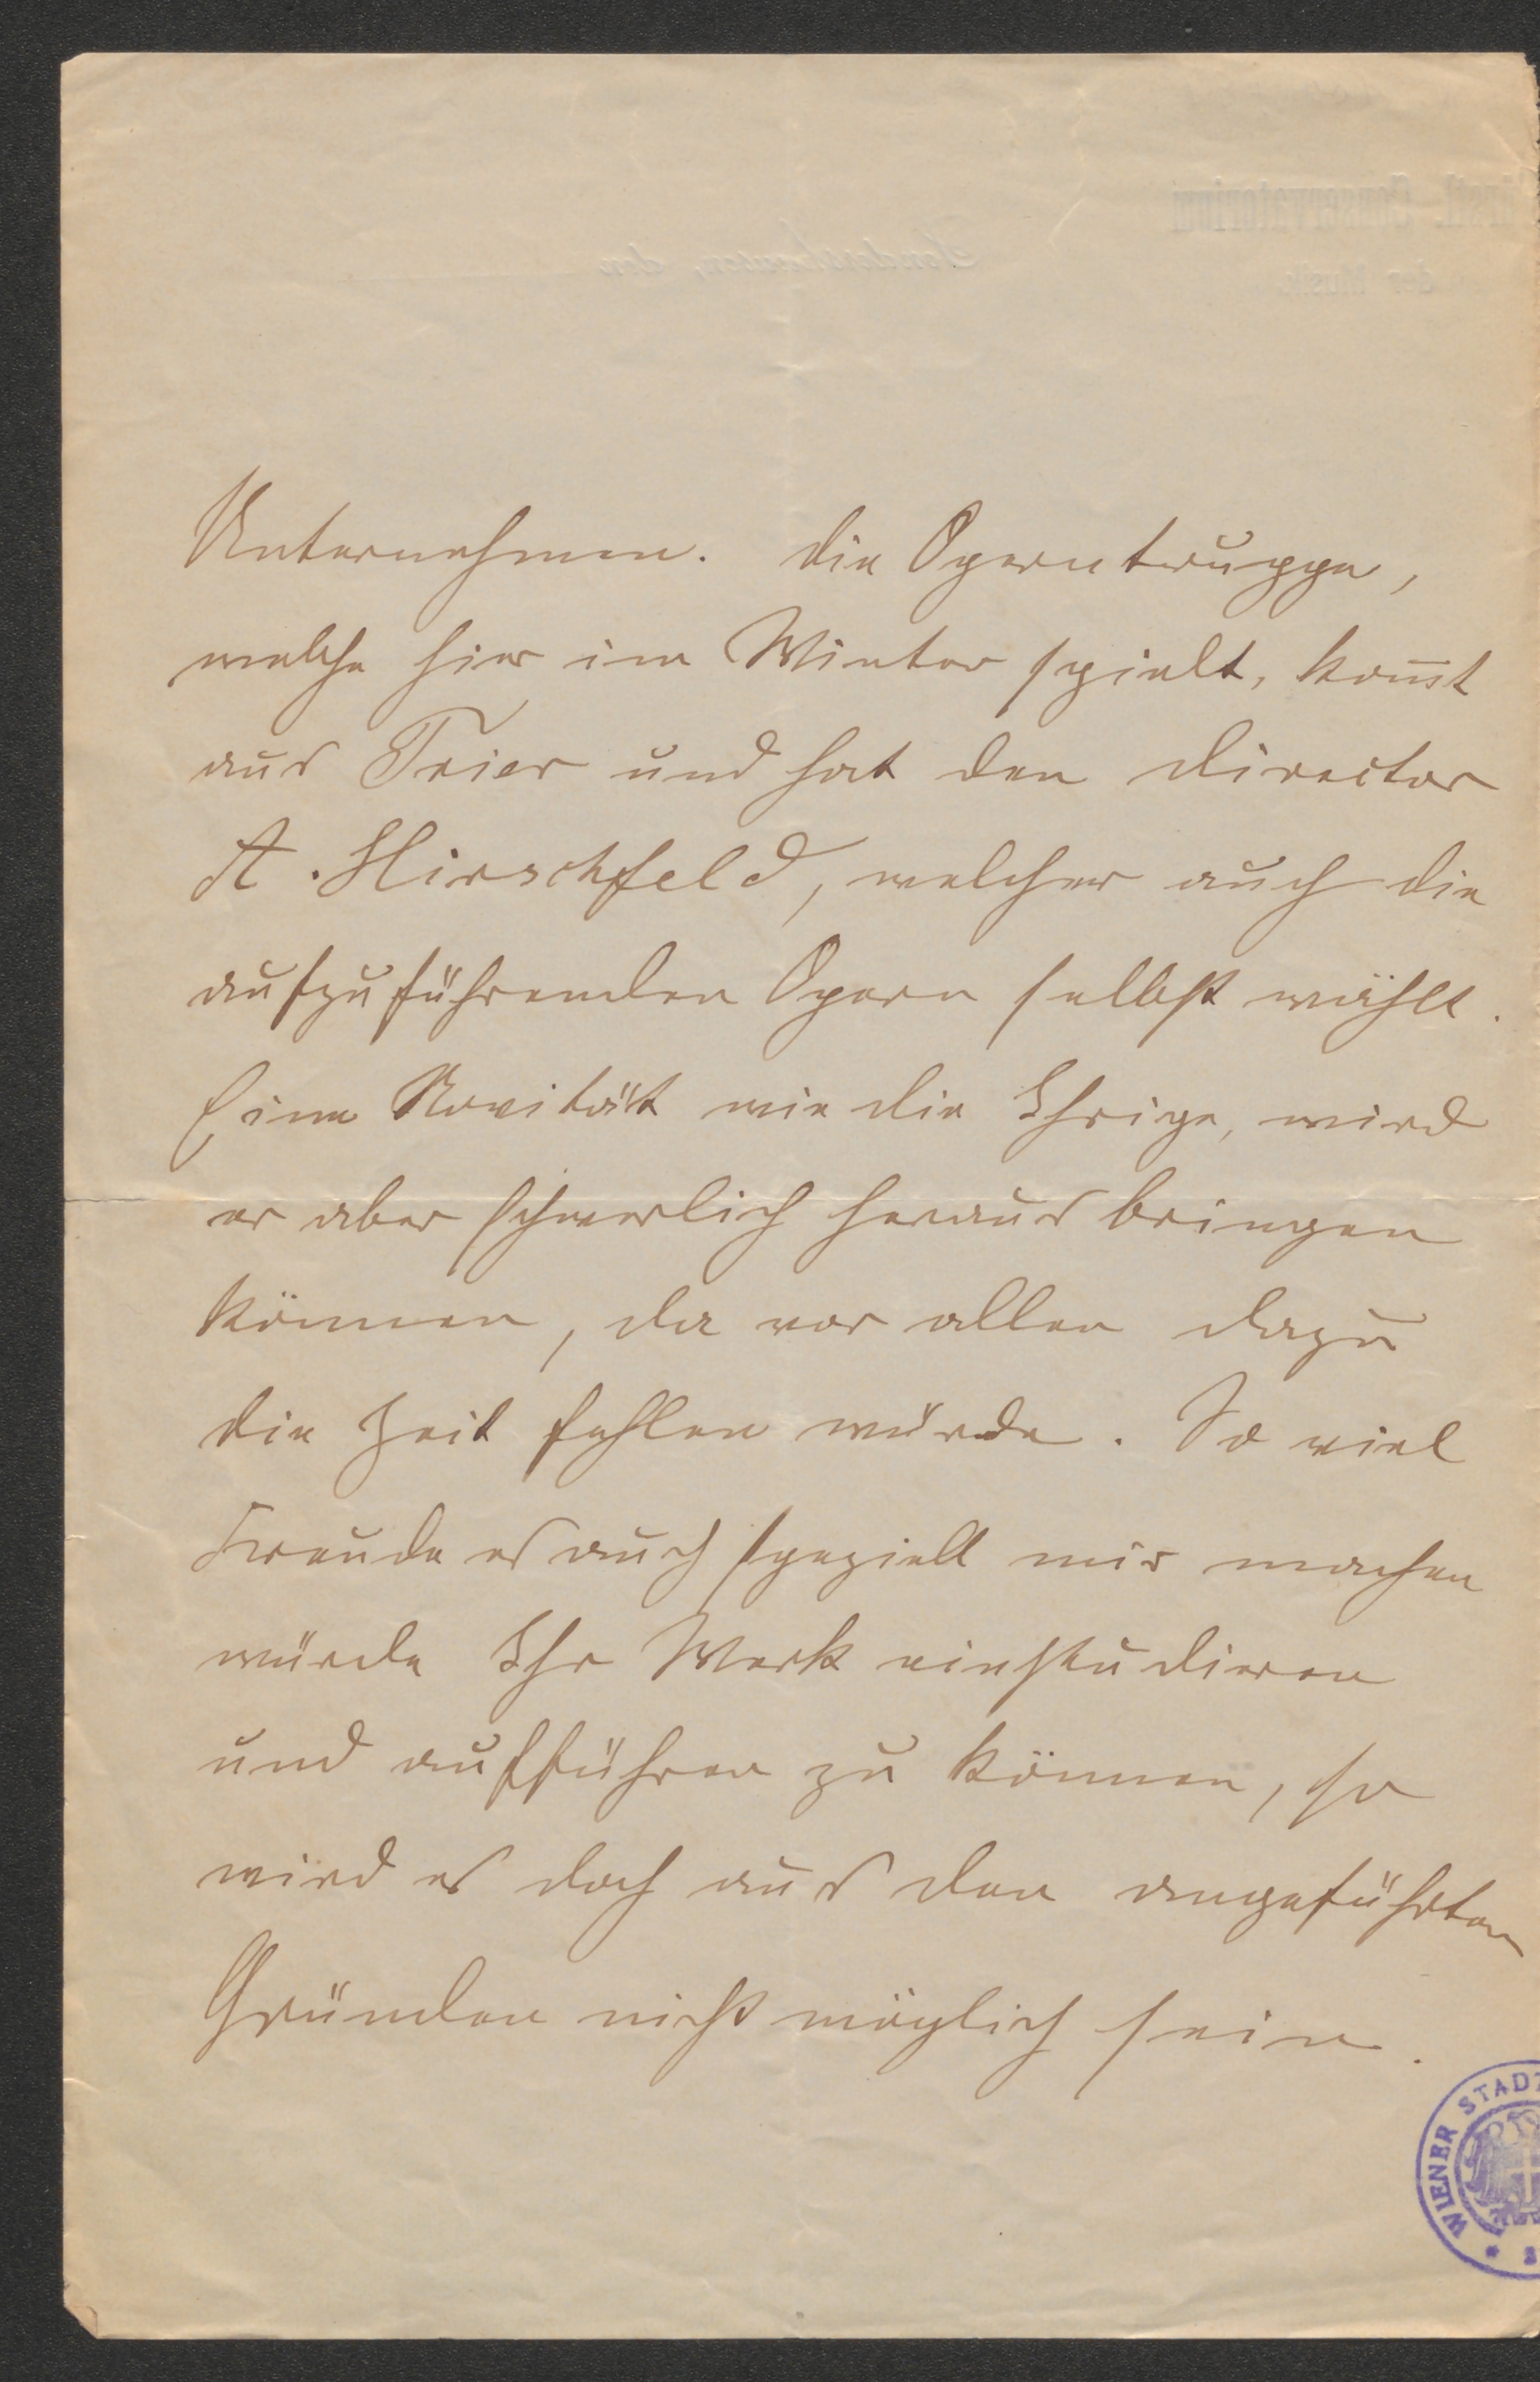 Fürstl. Conservatorium
der Musik.
Sondershausen, den
Unternehmen. Die Operntruppe,
welche hier im Winter spielt, kom̅t
aus Trier und hat den Director
A. Hirschfeld, welcher auch die
aufzuführenden Opern selbst wählt.
Eine Novität wie die Ihrige, wird
er aber schwerlich herausbringen
können, da vor allen dazu
die Zeit fehlen würde. So viel
Freude es auch speziell mir machen
würde Ihr Werk einstudieren
und aufführen zu können, so
wird es doch aus den angeführten
Gründen nicht möglich sein.
WIENER STADT